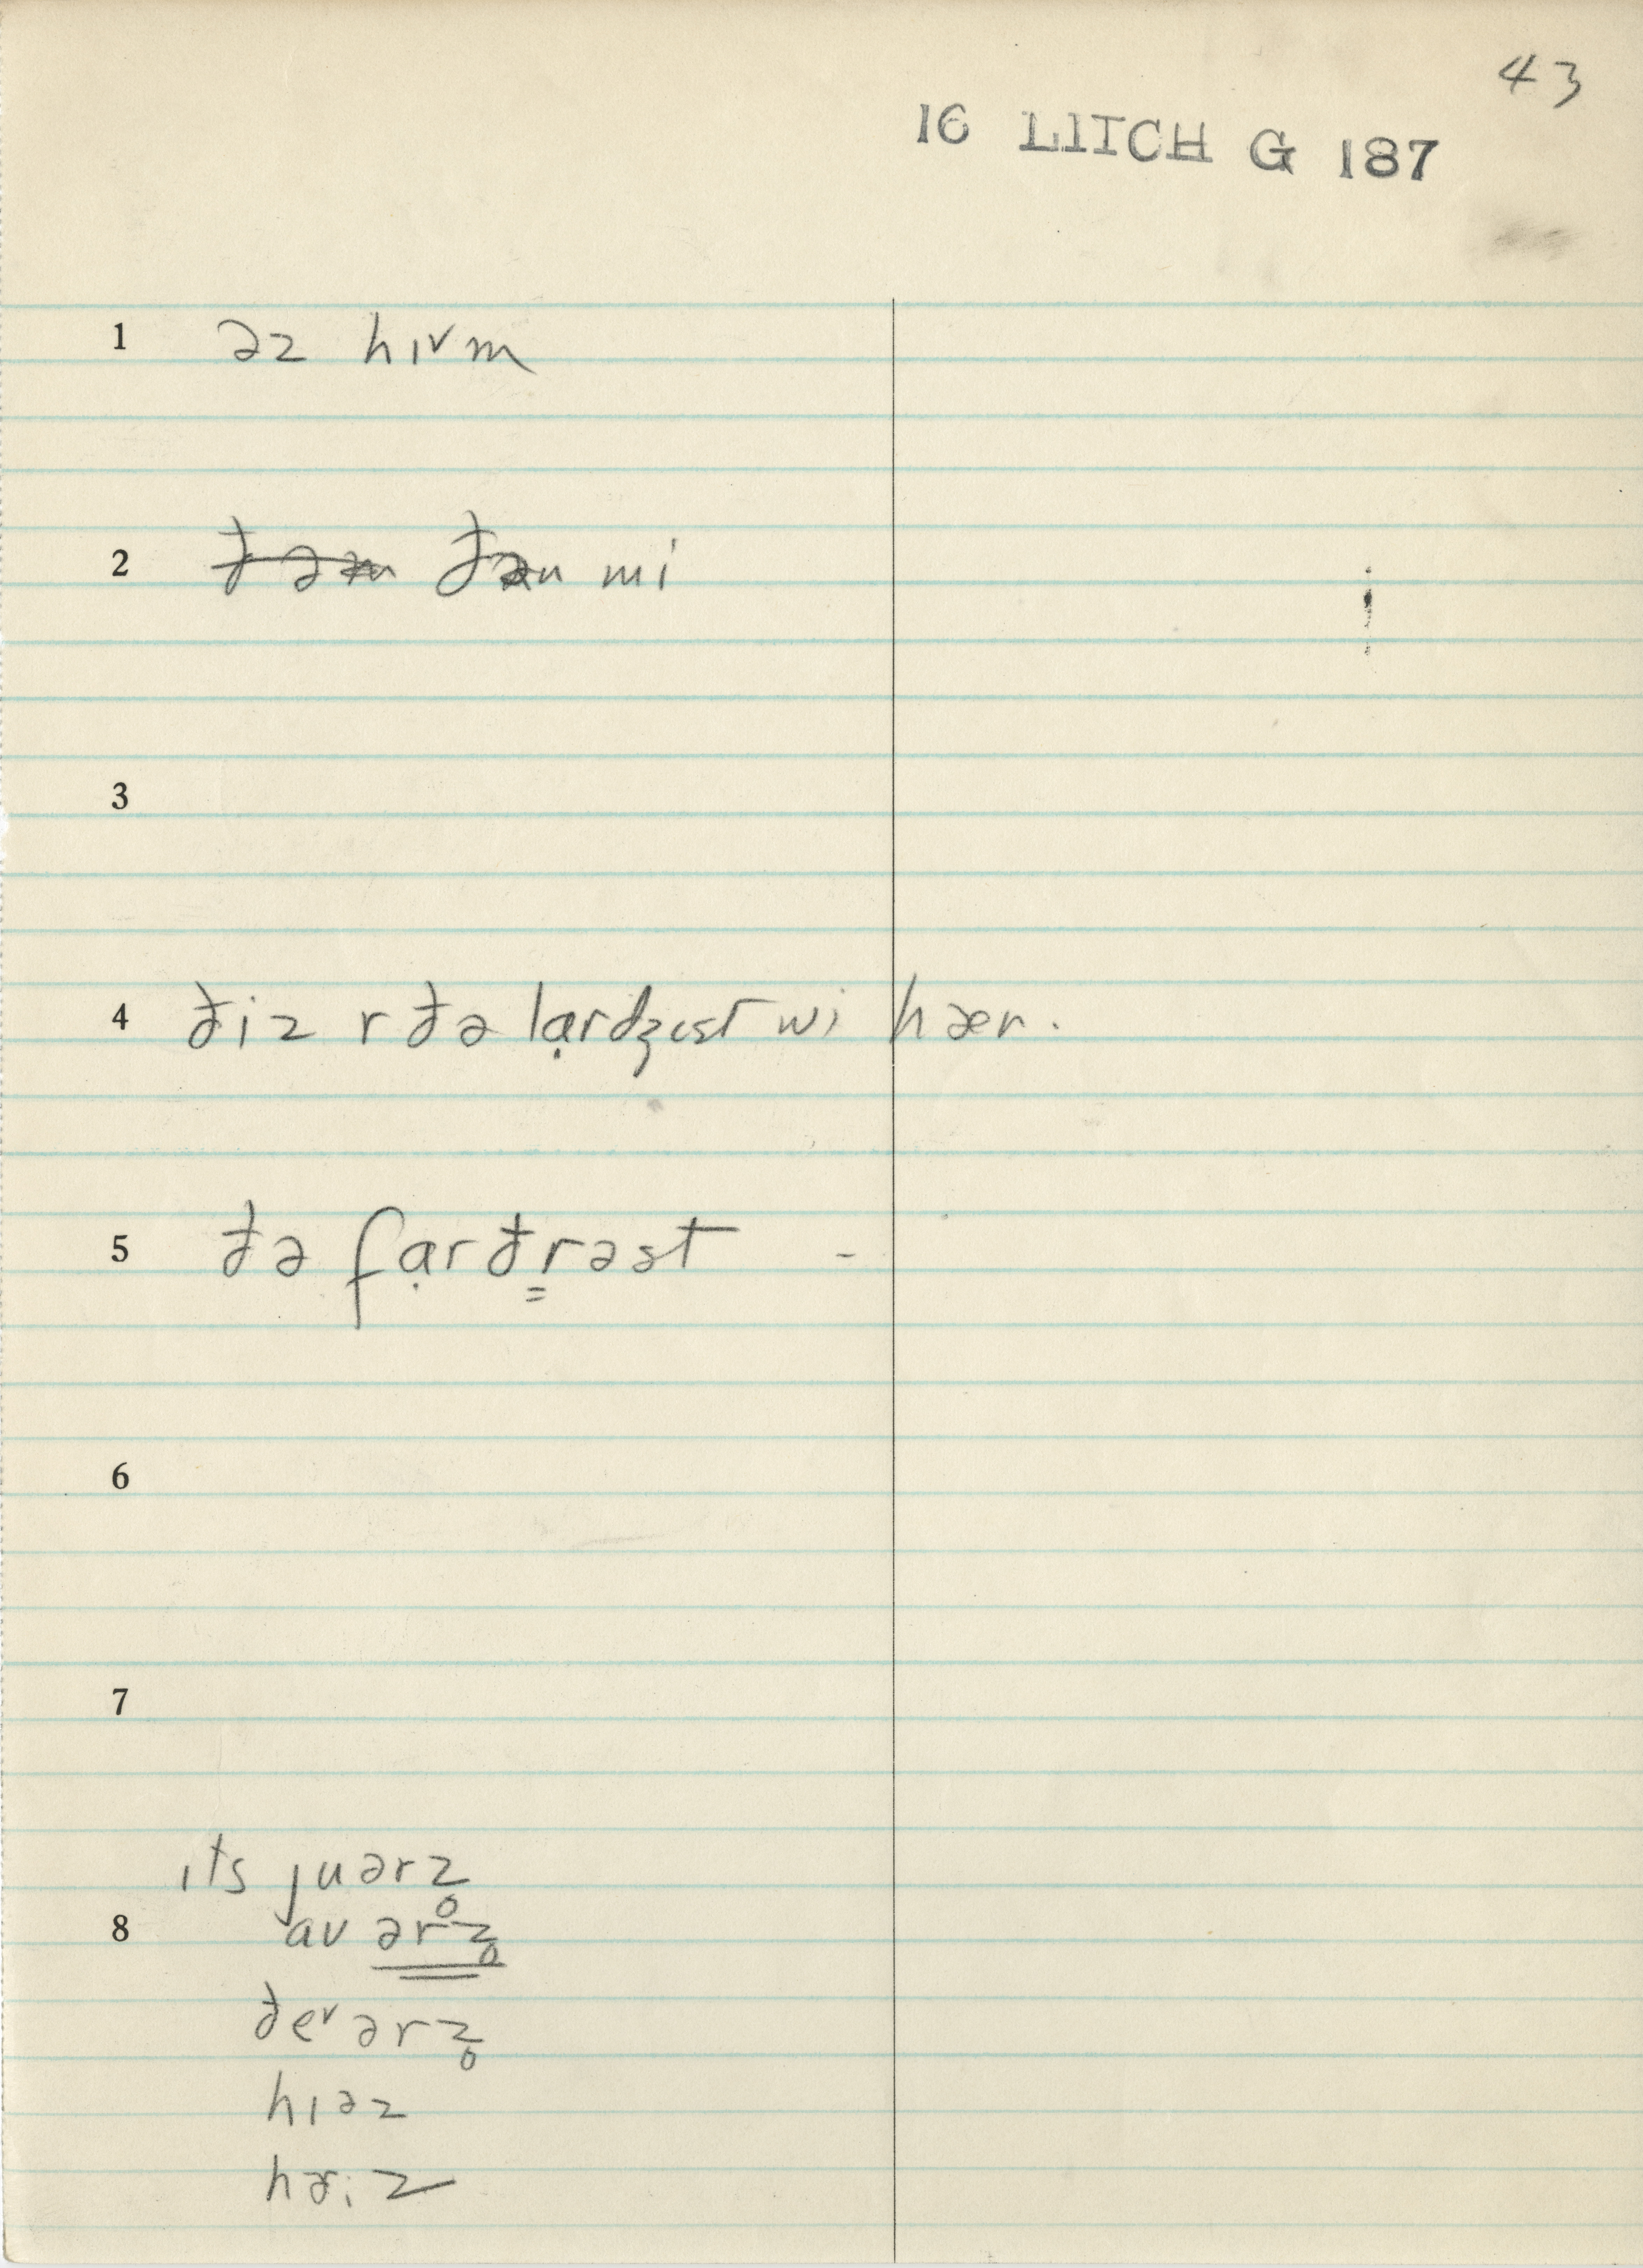 43
16 LITCH G 187
1 əz hɪvm
2 ~~ðəm~~ ðən mi
3
4 ðiz r ðə lạrdʒɪst wi hæv.
5 ðə fạrðr̳əst -
6
7
ɪts juərz̥
8 aʊ ərz̥
ðeʏ ərz̥
hɪəz
hɚːz